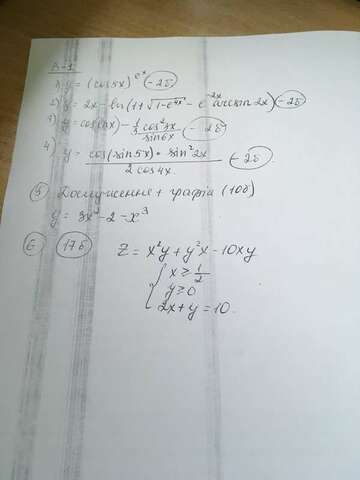 В-1
1) y = (cos 5x)^{e^x} - 2б
2) y = 2x - ln(1+√1-e^{4x} - e^{-2x} arcsin 2x) - 2б
3) y = cos(ln x) - \frac{1}{3} \frac{cos² 3x}{sin 6x} - 2б
4) y = \frac{cos(sin 5x) · sin² 2x}{2 cos 4x} - 2б
5 Дослідження + графік (10б)
y = 3x² - 2 - x³
6 17б Z = x²y + y²x - 10xy
{ x ≥ \frac{1}{2}
y ≥ 0
2x + y = 10